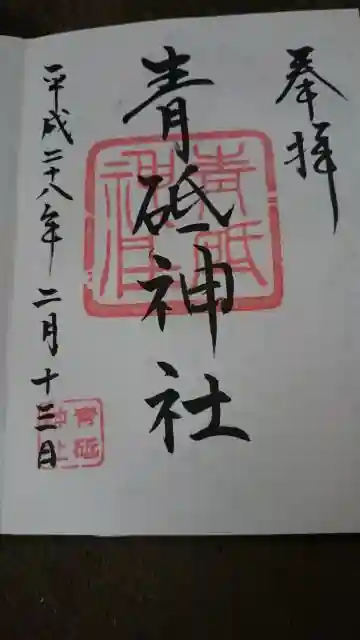 奉拝
青砥神社
平成二十八年二月十三日
青砥神社
青砥神社